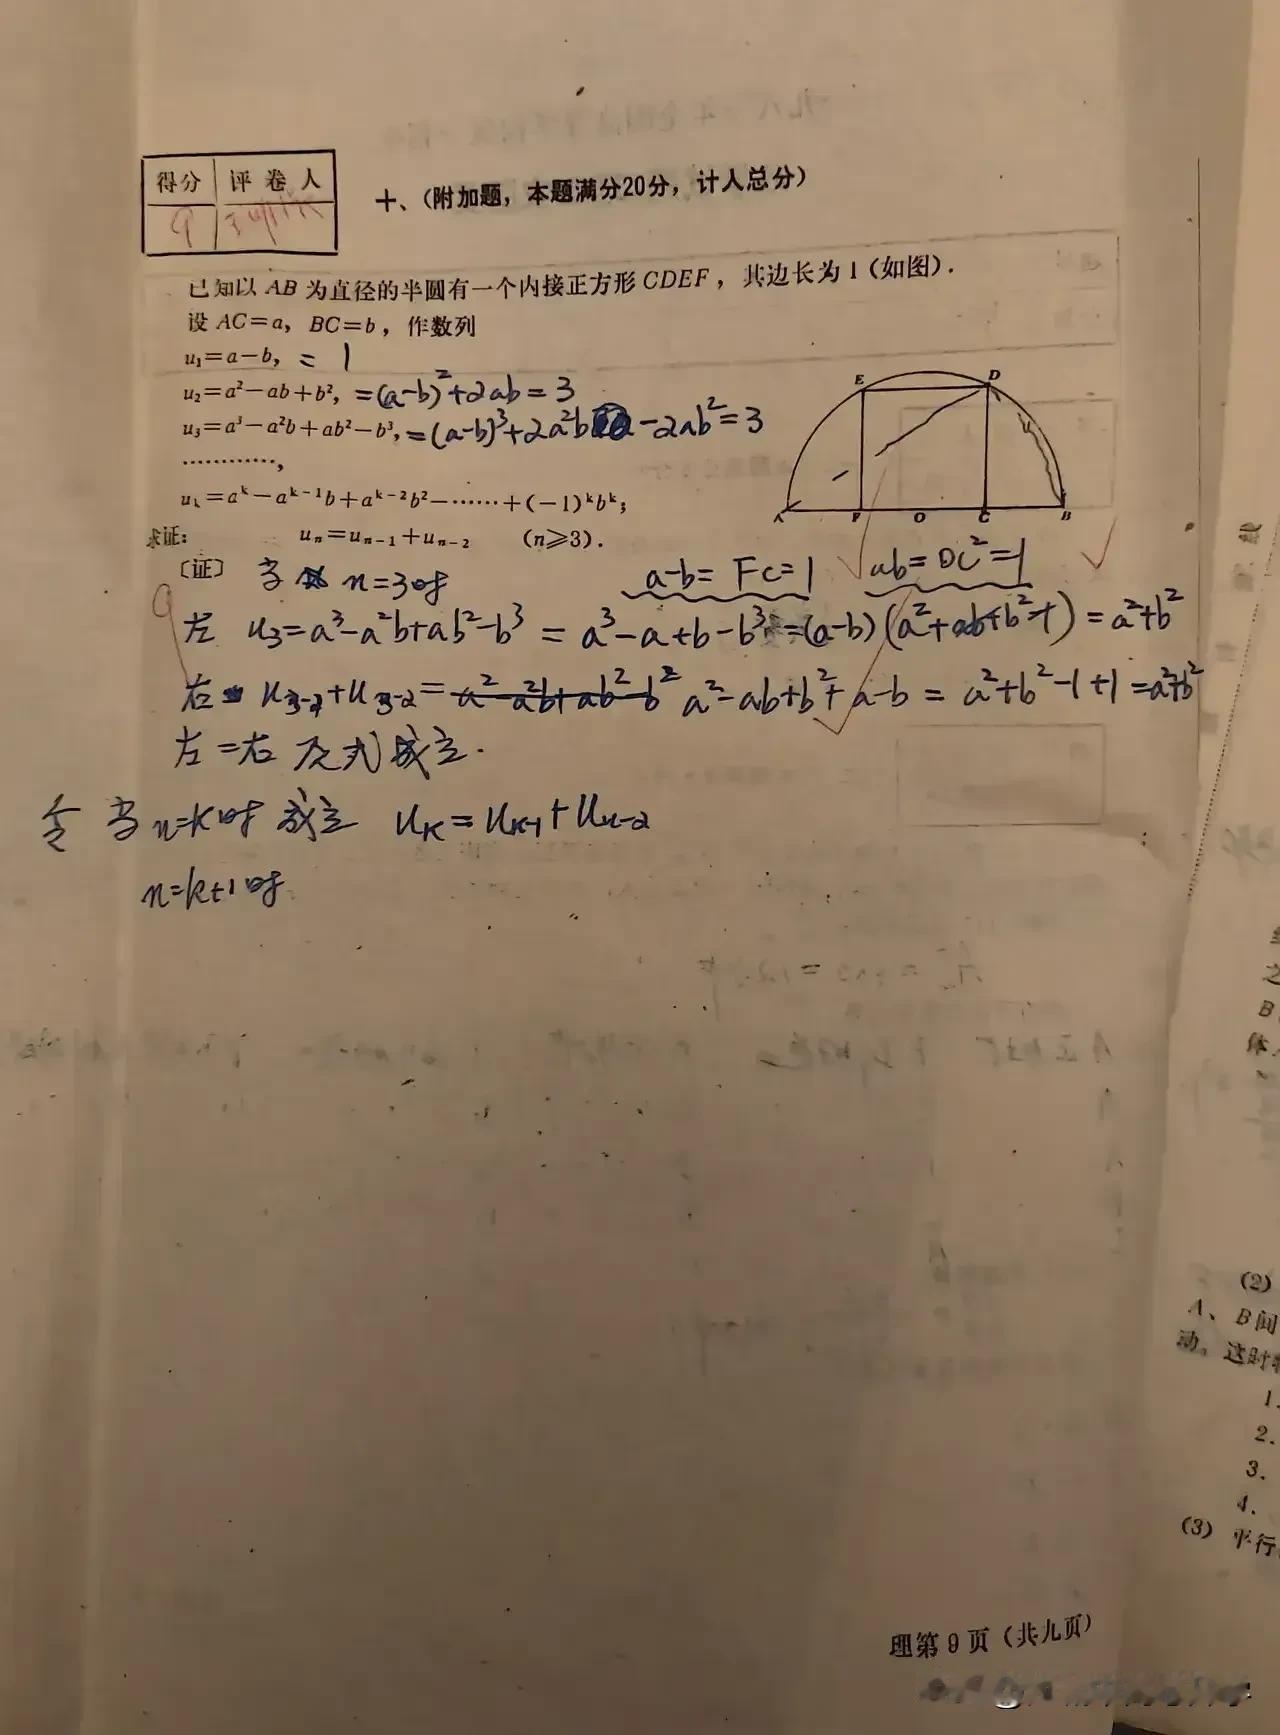 得分 评卷人
9
十、（附加题，本题满分20分，计人总分）
已知以 AB 为直径的半圆有一个内接正方形 CDEF，其边长为 1（如图）.
设 AC=a，BC=b，作数列
u₁=a−b, = 1
u₂=a²−ab+b², =(a-b)²+2ab=3
u₃=a³−a²b+ab²−b³, =(a-b)³+2a²b -2ab²=3
…………,
uₖ=aᵏ−aᵏ⁻¹b+aᵏ⁻²b²−……+(−1)ᵏbᵏ;
求证: uₙ=uₙ₋₁+uₙ₋₂ (n≥3).
E D
A F O C B
〔证〕 当 n=3时 a-b=FC=1 ab=DC²=1
9
左 u₃=a³-a²b+ab²-b³ = a³-a+b-b³=(a-b)(a²+ab+b²-1)=a²+b²
右 = a²-a²b+ab²-b² a²-ab+b²+a-b = a²+b²-1+1=a²+b²
左=右 成立.
令 当n=k时 成立 uₖ=uₖ₋₁+uₖ₋₂
n=k+1时
理第 9 页（共九页）
B
体
(2)
A、B间
动。这时
1.
2.
3.
4.
(3) 平行